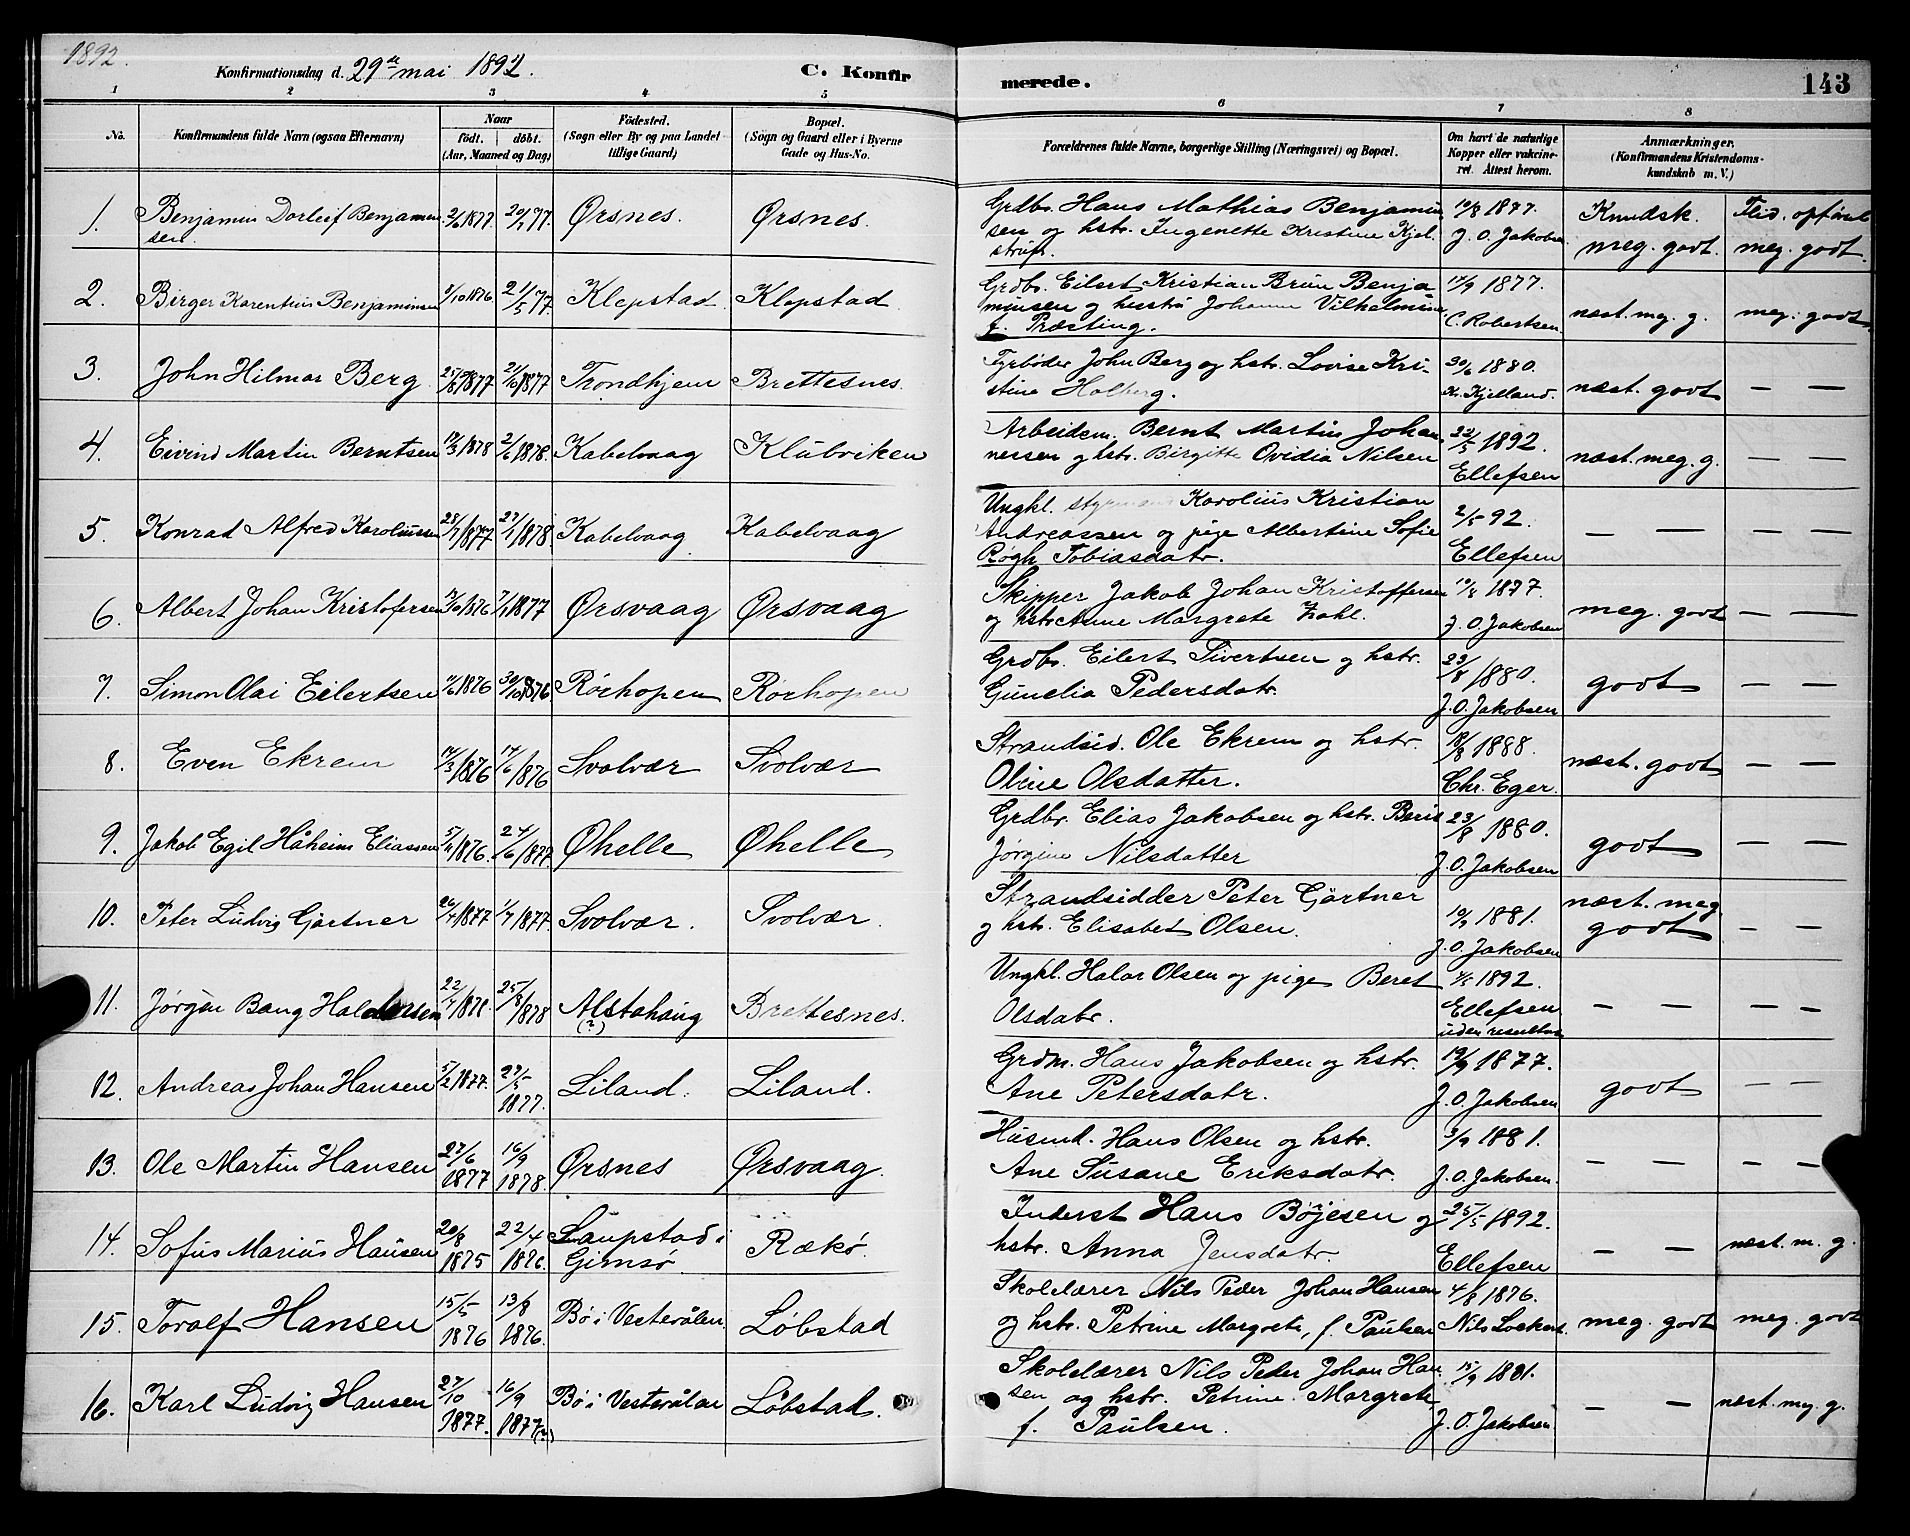 1892.
Konfirmationsdag d. 29de mai 1892.
C. Konfirmerede.
143
1 2 3 4 5 6 7 8
No.
Konfirmandens fulde Navn (ogsaa Efternavn)
Naar
født. døbt.
(Aar, Maaned og Dag)
Fødested.
(Sogn eller By og paa Landet
tillige Gaard)
Bopæl.
(Sogn og Gaard eller i Byerne
Gade og Hus-No.
Forældrenes fulde Navne, borgerlige Stilling (Næringsvei) og Bopæl.
Om havt de naturlige
Kopper eller vakcine-
ret. Attest herom.
Anmærkninger.
(Konfirmandens Kristendoms-
kundskab m. V.)
1. Benjamin Dorleif Benjamin 2/6 1877. 20/7 77. Ørsnes. Ørsnes. Grdbr. Hans Mathias Benjamin 19/8 1877. Knudsk. Flid. opførsl
sen. sen og hstr. Ingenette Kristine Kjel- J. O. Jakobsen. meg. godt. meg. godt.
strup.
2. Birger Karentius Benjaminsen 9/10 1876. 21/5 77. Klepstad. Klepstad. Grdbr. Eilert Kristian Brun Benja 17/9 1877.
minsen og hustru Johanna Vilhelmine C. Robertsen. næst. mg. g. meg. godt
f. Præsting.
3. John Hilmar Berg 25/8 1877 21/10 1877 Trondhjem Brettesnes. Fyrbøder John Berg og hstr. Lovise Kri- 30/6 1880.
stine Holberg. Kr. Kjelland. næst. godt — —
4. Eivind Martin Berntsen 17/3 1878 2/6 1878. Kabelvaag Klubviken Arbeidsm. Bernt Martin Johan 22/5 1892.
nessen og hstr. Birgitte Ovidia Nilsen Ellefsen næst. meg. g. — —
5. Konrad Alfred Karoliussen 28/7 1877 27/1 1878. Kabelvaag Kabelvaag Ungkl. Karolius Kristian 2/5 92.
Andreassen og pige Albertine Sofie — — — —
Røgh Tobiasdatr. Ellefsen
6. Albert Johan Kristofersen 1876 7/1 1877 Ørsvaag Ørsvaag Skipper Jakob Johan Kristoffersen 19/8 1877.
og hstr Anne Margrete Zahl. J. O. Jakobsen meg. godt — —
7. Simon Olai Eilertsen 1876 30/10 1876 Rørhopen Rørhopen Grdbr. Eilert Sivertsen og hstr. 23/8 1880.
Gunelia Pedersdatr. J. O. Jakobsen godt — —
8. Even Ekrem 14/3 1876 17/6 1876 Svolvær Svolvær Strandsid. Ole Ekrem og hstr. 18/8 1888.
Oline Olsdatter. Chr. Eger. næst. godt — —
9. Jakob Egil Håheim Eliassen 1876. 24/6 1877 Øhelle Øhelle Grdbr. Elias Jakobsen og hstr. Berit 23/8 1880.
Jørgine Nilsdatter J. O. Jakobsen godt — —
10. Peter Ludvig Gårtner 26/4 1877 1/7 1877. Svolvær. Svolvær. Strandsidder Peter Gårtner 19/9 1881. næst. meg
og hstr. Elisabet Olsen. J. O. Jakobsen godt — —
11. Jørgen Bang Haldorsen 22/7 1878. 25/8 1878 Alstahaug (?) Brettesnes. Ungkl. Halor Olsen og pige Beret 1892.
Olsdatr. Ellefsen — — — —
uden resultat
12. Andreas Johan Hansen 5/2 1877. 27/5 1877. Liland. Liland. Grdm. Hans Jakobsen og hstr. 19/9 1877.
Ane Petersdatr. J. O. Jakobsen godt — —
13. Ole Martin Hansen 27/6 1877 16/9 1878. Ørsnes Ørsvaag. Husmd. Hans Olsen og hstr. 3/9 1881.
Ane Susane Eriksdatr. J. O. Jakobsen. — — — —
14. Sofus Marius Hansen 20/8 1875 22/4 1876. Laupstad i Gimsø. Rækø. Inderst Hans Bøjesen og 25/5 1892.
hstr. Anna Jensdatr. Ellefsen — — næst. m. g.
15. Toralf Hansen 15/5 1876 13/8 1876. Bø i Vesterålen. Løbstad Skolelærer Nils Peder Johan Hansen 4/8 1876.
og hstr. Petrine Margrete, f. Paulsen Nils Lockert. meg. godt meg. godt
16. Karl Ludvig Hansen 27/10 1877. 16/9 1877(?) Bø i Vesterålen Løbstad. Skolelærer Nils Peder Johan Han 15/9 1881.
sen og hstr. Petrine Margrete — — næst. meg. g.
f. Paulsen. J. O. Jakobsen